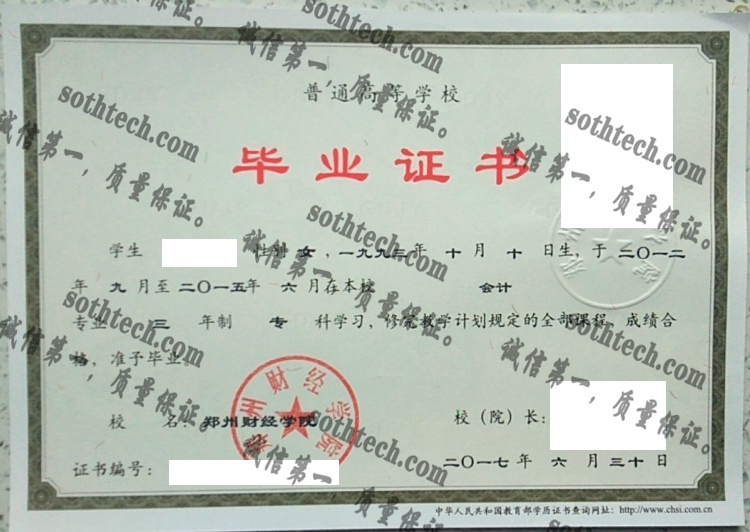 普通高等学校
毕业证书
学生 性别 女，一九九三年 十 月 十 日生，于 二〇一二
年 九 月至 二〇一五年 六 月在本校 会计
专业 三 年制 专 科学习，修完教学计划规定的全部课程，成绩合
格，准予毕业。
郑州财经学院
校 名：郑州财经学院
校（院）长：
证书编号：
二〇一七年 六 月 三十 日
中华人民共和国教育部学历证书查询网址：http://www.chsi.com.cn
sothtech.com
诚信第一，质量保证。
sothtech.com
诚信第一，质量保证。
sothtech.com
诚信第一，质量保证。
sothtech.com
诚信第一，质量保证。
sothtech.com
诚信第一，质量保证。
sothtech.com
诚信第一，质量保证。
sothtech.com
诚信第一，质量保证。
sothtech.com
诚信第一，质量保证。